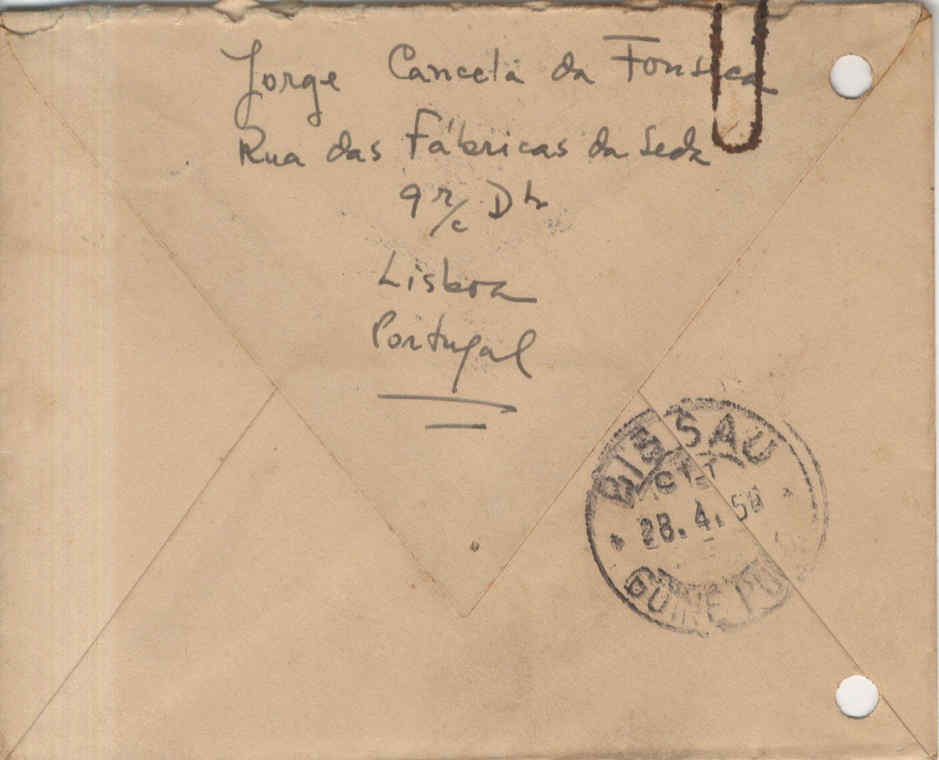 Jorge Cancela da Fonseca
Rua das Fábricas da Seda
9 r/c Dto
Lisboa
Portugal
BISSAU
CTT
28.4.58
GUINÉ PO